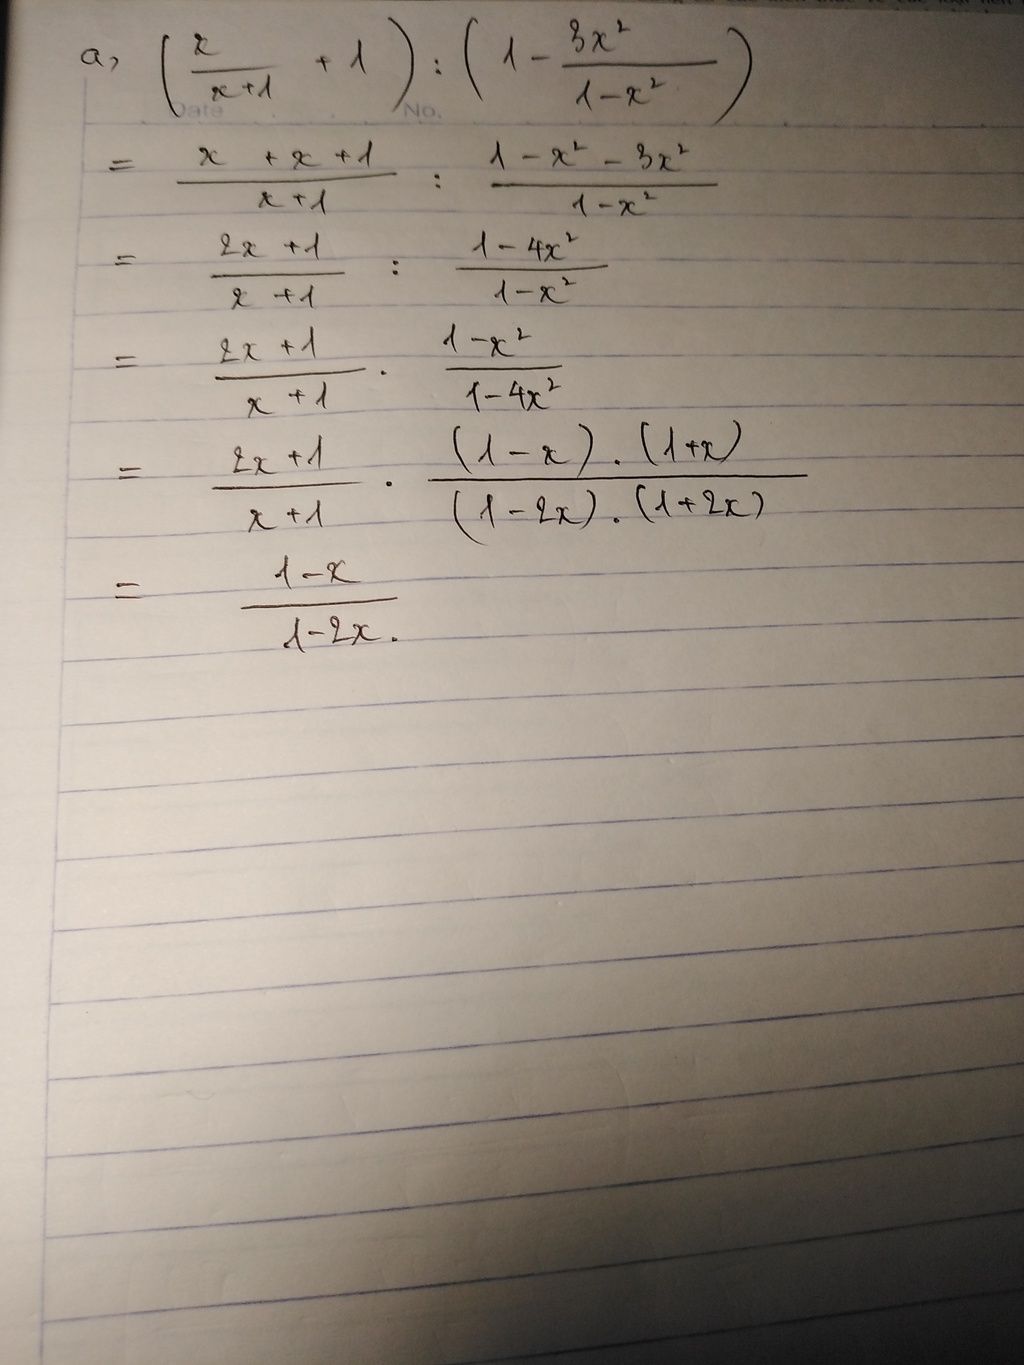 a, (x/(x+1) + 1) : (1 - 3x²/(1-x²))
Date No.
= (x + x + 1)/(x+1) : (1 - x² - 3x²)/(1-x²)
= (2x + 1)/(x + 1) : (1 - 4x²)/(1-x²)
= (2x + 1)/(x + 1) . (1-x²)/(1-4x²)
= (2x + 1)/(x + 1) . ((1-x).(1+x))/((1-2x).(1+2x))
= (1-x)/(1-2x).